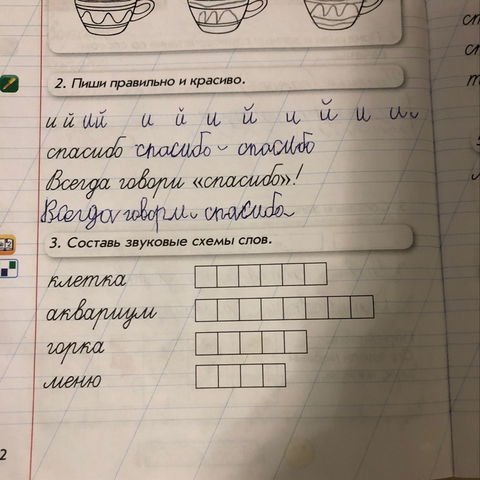 2. Пиши правильно и красиво.
и й ий и й и й и й и и
спасибо спасибо спасибо
Всегда говори «спасибо»!
Всегда говори спасибо
3. Составь звуковые схемы слов.
клетка
аквариум
горка
меню
2